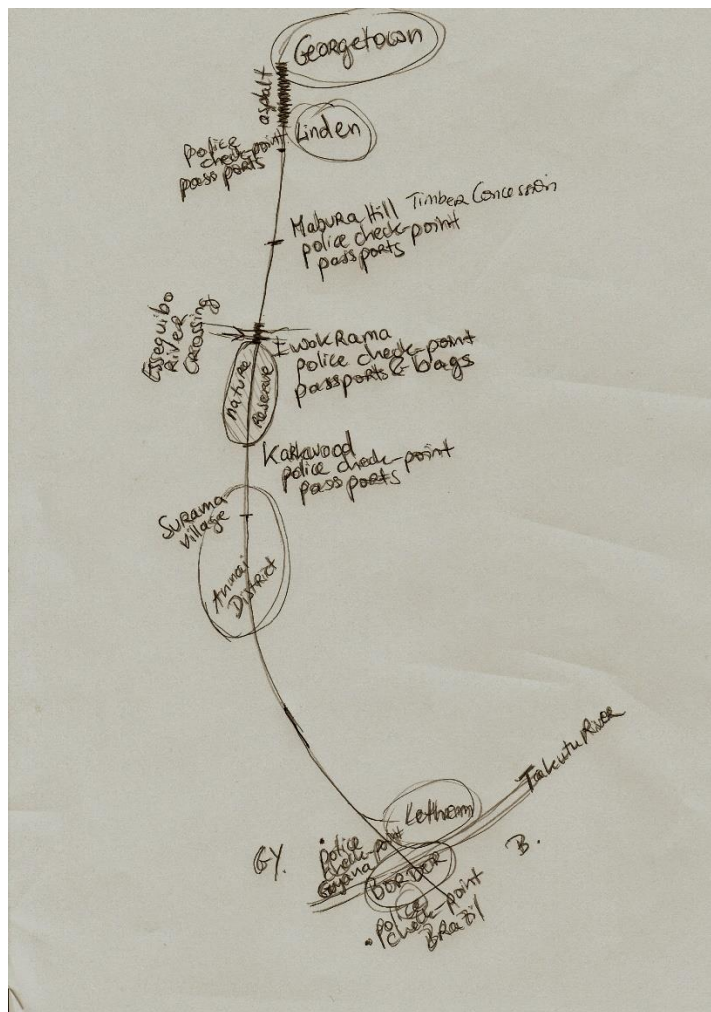 Georgetown
asphalt
Linden
police
check-point
passports
Mabura Hill Timber Concession
police check-point
passports
Essequibo
River
Crossing
Iwokrama
police check-point
passports & bags
nature
reserve
police check-point
passports
Surama
village
Annai
District
Takutu River
Lethem
GY.
police
check-point
Guyana
BORDER
B.
police
check-point
Brazil